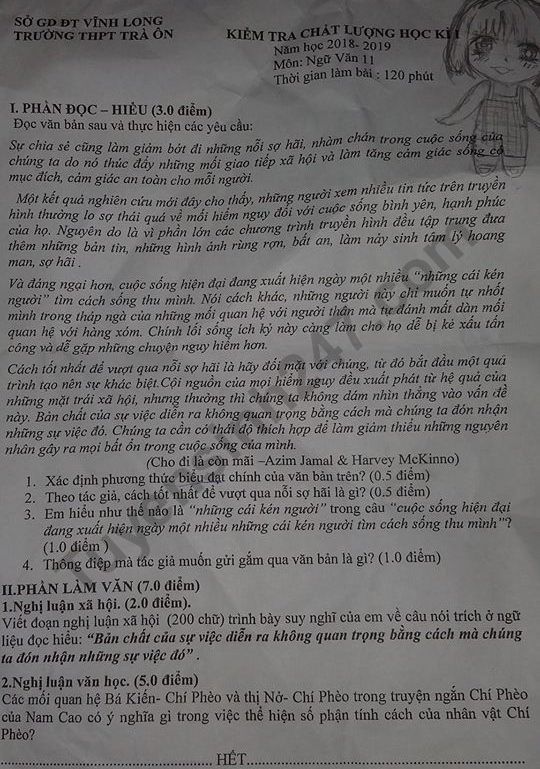 SỞ GD ĐT VĨNH LONG
TRƯỜNG THPT TRÀ ÔN
KIỂM TRA CHẤT LƯỢNG HỌC KÌ I
Năm học 2018- 2019
Môn: Ngữ Văn 11
Thời gian làm bài : 120 phút
I. PHẦN ĐỌC – HIỂU (3.0 điểm)
Đọc văn bản sau và thực hiện các yêu cầu:
Sự chia sẻ cũng làm giảm bớt đi những nỗi sợ hãi, nhàm chán trong cuộc sống của
chúng ta do nó thúc đẩy những mối giao tiếp xã hội và làm tăng cảm giác sống có
mục đích, cảm giác an toàn cho mỗi người.
Một kết quả nghiên cứu mới đây cho thấy, những người xem nhiều tin tức trên truyền
hình thường lo sợ thái quá về mối hiểm nguy đối với cuộc sống bình yên, hạnh phúc
của họ. Nguyên do là vì phần lớn các chương trình truyền hình đều tập trung đưa
thêm những bản tin, những hình ảnh rùng rợn, bất an, làm nảy sinh tâm lý hoang
man, sợ hãi .
Và đáng ngại hơn, cuộc sống hiện đại đang xuất hiện ngày một nhiều “những cái kén
người” tìm cách sống thu mình. Nói cách khác, những người này chỉ muốn tự nhốt
mình trong tháp ngà của những mối quan hệ với người thân mà tự đánh mất dần mối
quan hệ với hàng xóm. Chính lối sống ích kỷ này càng làm cho họ dễ bị kẻ xấu tấn
công và dễ gặp những chuyện nguy hiểm hơn.
Cách tốt nhất để vượt qua nỗi sợ hãi là hãy đối mặt với chúng, từ đó bắt đầu một quá
trình tạo nên sự khác biệt.Cội nguồn của mọi hiểm nguy đều xuất phát từ hệ quả của
những mặt trái xã hội, nhưng thường thì chúng ta không dám nhìn thẳng vào vấn đề
này. Bản chất của sự việc diễn ra không quan trọng bằng cách mà chúng ta đón nhận
những sự việc đó. Chúng ta cần có thái độ thích hợp để làm giảm thiểu những nguyên
nhân gây ra mọi bất ổn trong cuộc sống của mình.
(Cho đi là còn mãi –Azim Jamal & Harvey McKinno)
1. Xác định phương thức biểu đạt chính của văn bản trên? (0.5 điểm)
2. Theo tác giả, cách tốt nhất để vượt qua nỗi sợ hãi là gì? (0.5 điểm)
3. Em hiểu như thế nào là “những cái kén người” trong câu “cuộc sống hiện đại
đang xuất hiện ngày một nhiều những cái kén người tìm cách sống thu mình”?
(1.0 điểm )
4. Thông điệp mà tác giả muốn gửi gắm qua văn bản là gì? (1.0 điểm)
II.PHẦN LÀM VĂN (7.0 điểm)
1.Nghị luận xã hội. (2.0 điểm).
Viết đoạn nghị luận xã hội (200 chữ) trình bày suy nghĩ của em về câu nói trích ở ngữ
liệu đọc hiểu: “Bản chất của sự việc diễn ra không quan trọng bằng cách mà chúng
ta đón nhận những sự việc đó” .
2.Nghị luận văn học. (5.0 điểm)
Các mối quan hệ Bá Kiến- Chí Phèo và thị Nở- Chí Phèo trong truyện ngắn Chí Phèo
của Nam Cao có ý nghĩa gì trong việc thể hiện số phận tính cách của nhân vật Chí
Phèo?
HẾT